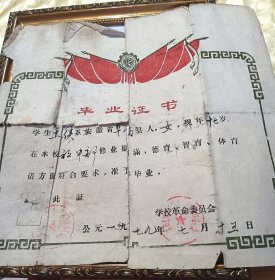 毕业证书
学生 系安徽省 县人,女,现年 岁
在本校 修业期满,德育、智育、体育
诸方面符合要求,准予毕业。
此证
学校革命委员会
公元一九七九年七月十五日